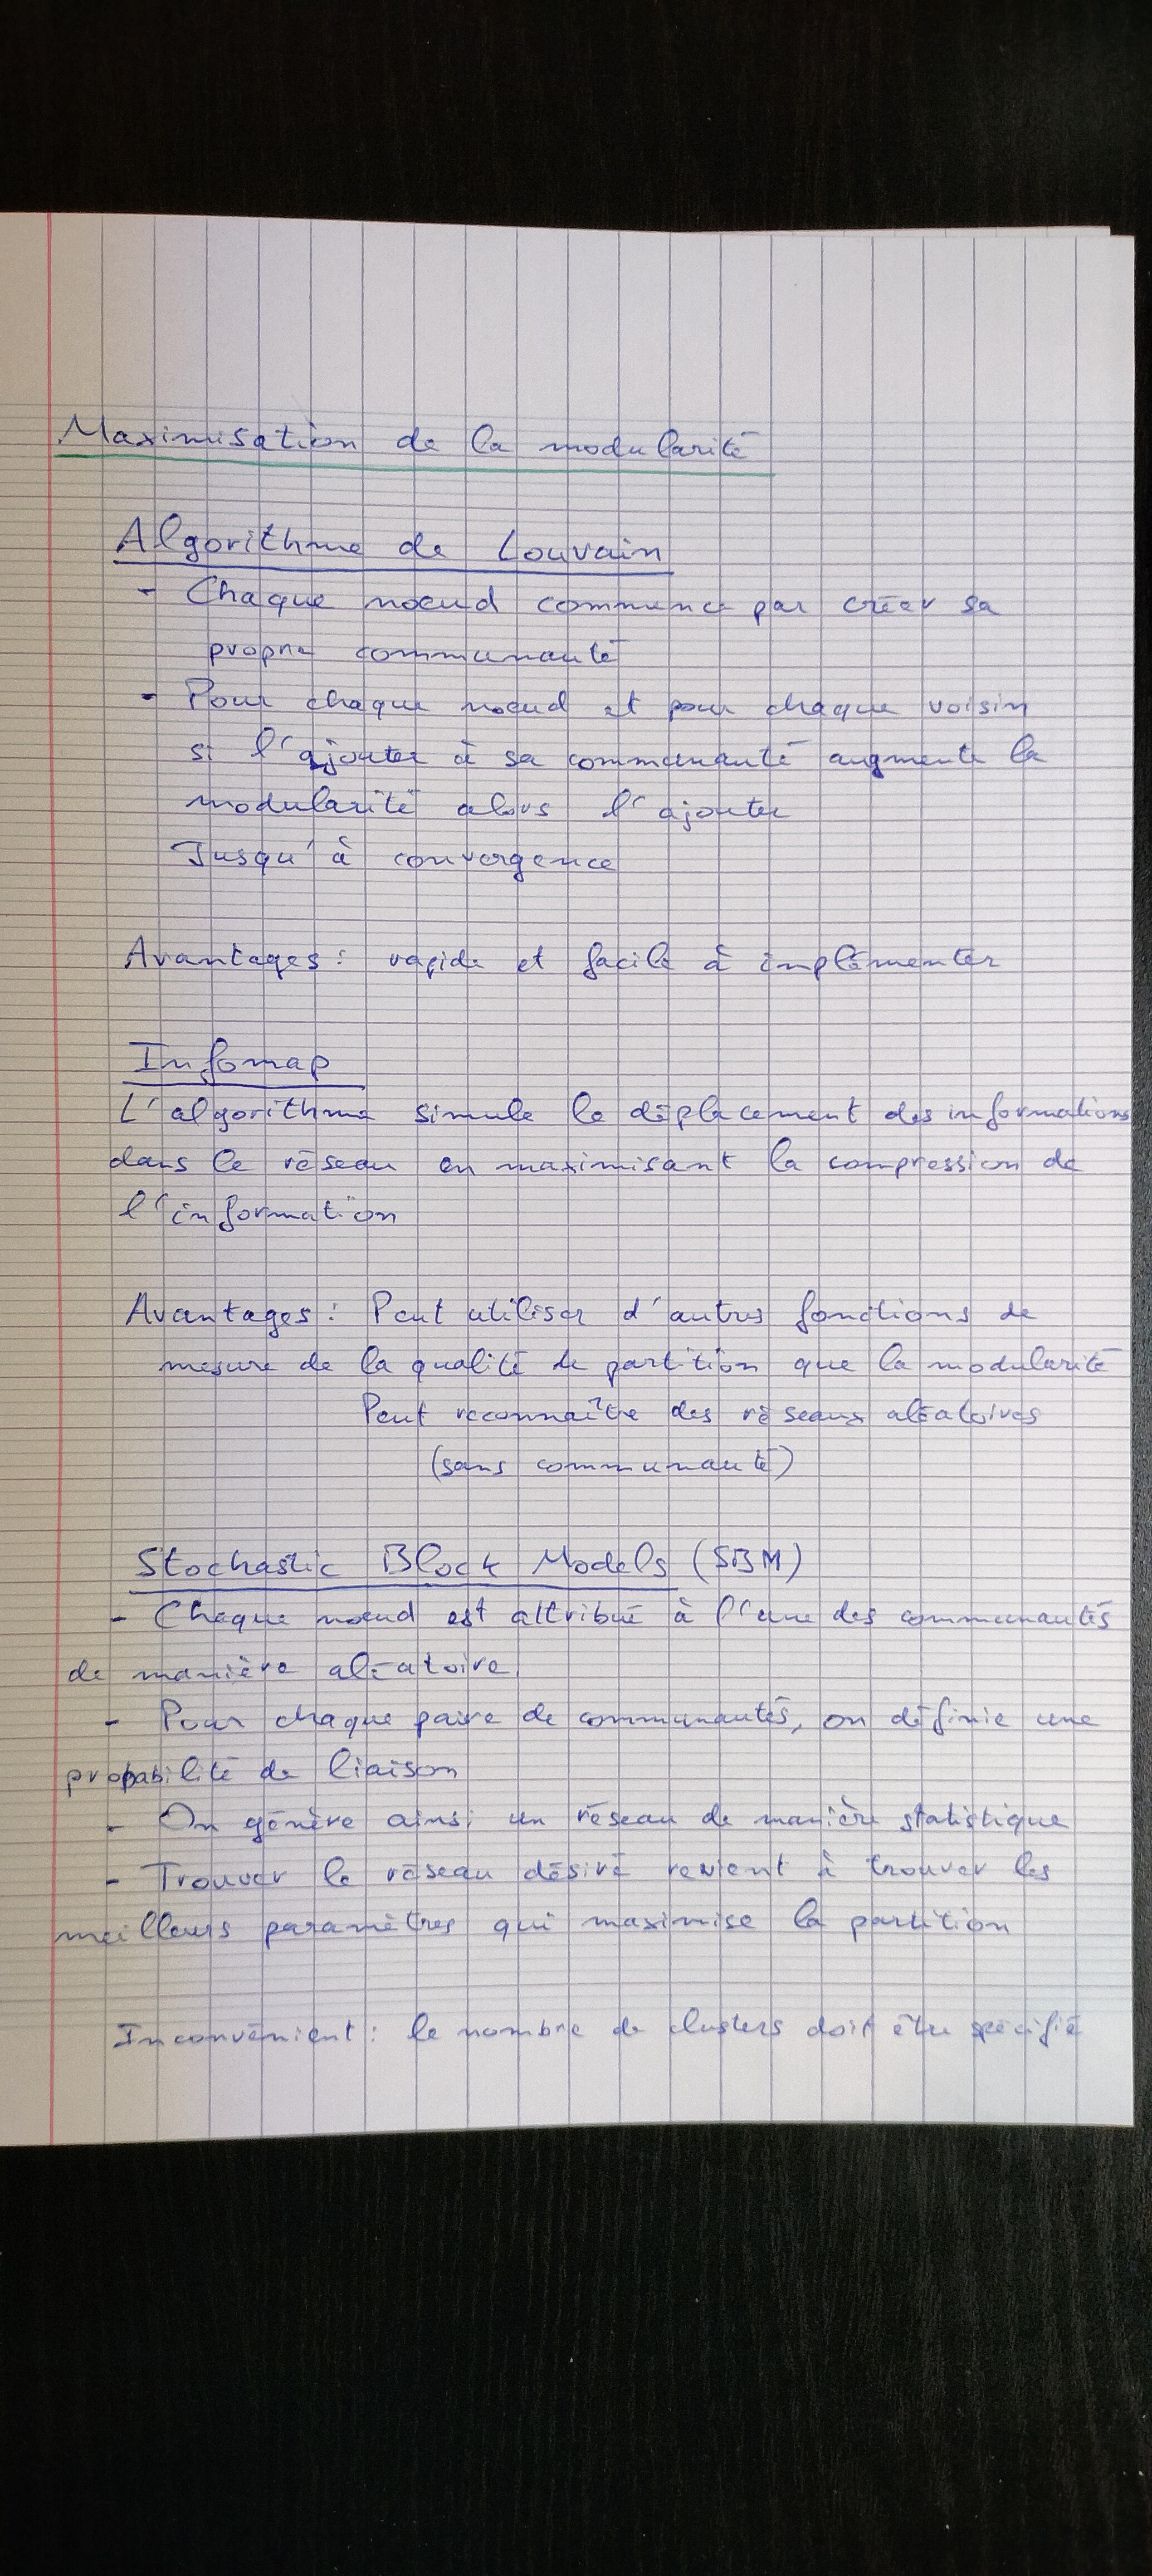 Maximisation de la modularité
Algorithme de Louvain
- Chaque noeud commence par créer sa
propre communauté
- Pour chaque noeud et pour chaque voisin
si l'ajouter à sa communauté augmente la
modularité alors l'ajouter
Jusqu'à convergence
Avantages : rapide et facile à implémenter
Infomap
L'algorithme simule le déplacement des informations
dans le réseau en maximisant la compression de
l'information
Avantages : Peut utiliser d'autres fonctions de
mesure de la qualité de partition que la modularité
Peut reconnaître des réseaux aléatoires
(sans communauté)
Stochastic Block Models (SBM)
- Chaque noeud est attribué à l'une des communautés
de manière aléatoire
- Pour chaque paire de communautés, on définie une
probabilité de liaison
- On génère ainsi un réseau de manière statistique
- Trouver le réseau désiré revient à trouver les
meilleurs paramètres qui maximise la partition
Inconvénient : le nombre de clusters doit être spécifié